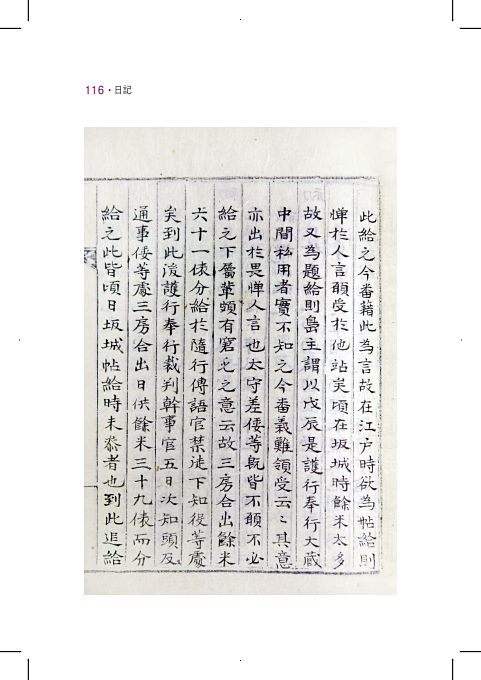 116 · 日記
此給之今番藉此為言故在江戶時欲為帖給則
憚於人言願受於他站矣頃在坂城時餘米太多
故又為題給則島主謂以戊辰是護行奉行大藏
中間私用者實不知之今番義難領受云云其意
亦出於畏憚人言也太守差倭等旣皆不願不必
給之下屬輩頗有窺乞之意云故三房合出餘米
六十一俵分給於隨行傳語官禁徒下知役等處
矣到此後護行奉行裁判幹事官五日次知頭及
通事倭等處三房合出日供餘米三十九俵而分
給之此皆頃日坂城帖給時未叅者也到此追給